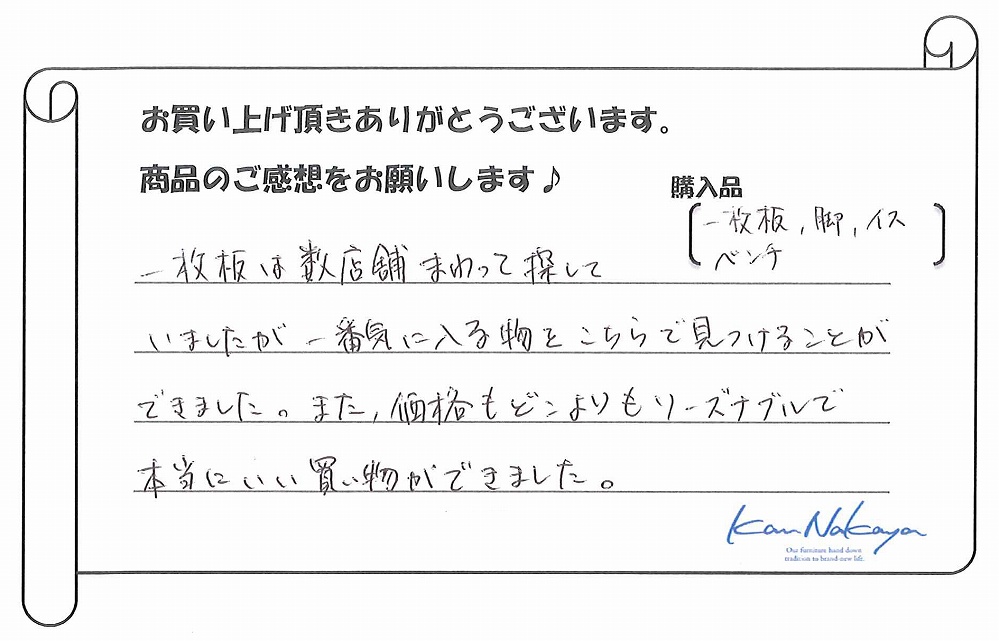 お買い上げ頂きありがとうございます。
商品のご感想をお願いします♪
購入品
一枚板, 脚, イス
ベンチ
一枚板は数店舗まわって探して
いましたが一番気に入る物をこちらで見つけることが
できました。また, 価格もどこよりもリーズナブルで
本当にいい買い物ができました。
Kan Nakaya
Our furniture hand down
tradition to brand-new life.